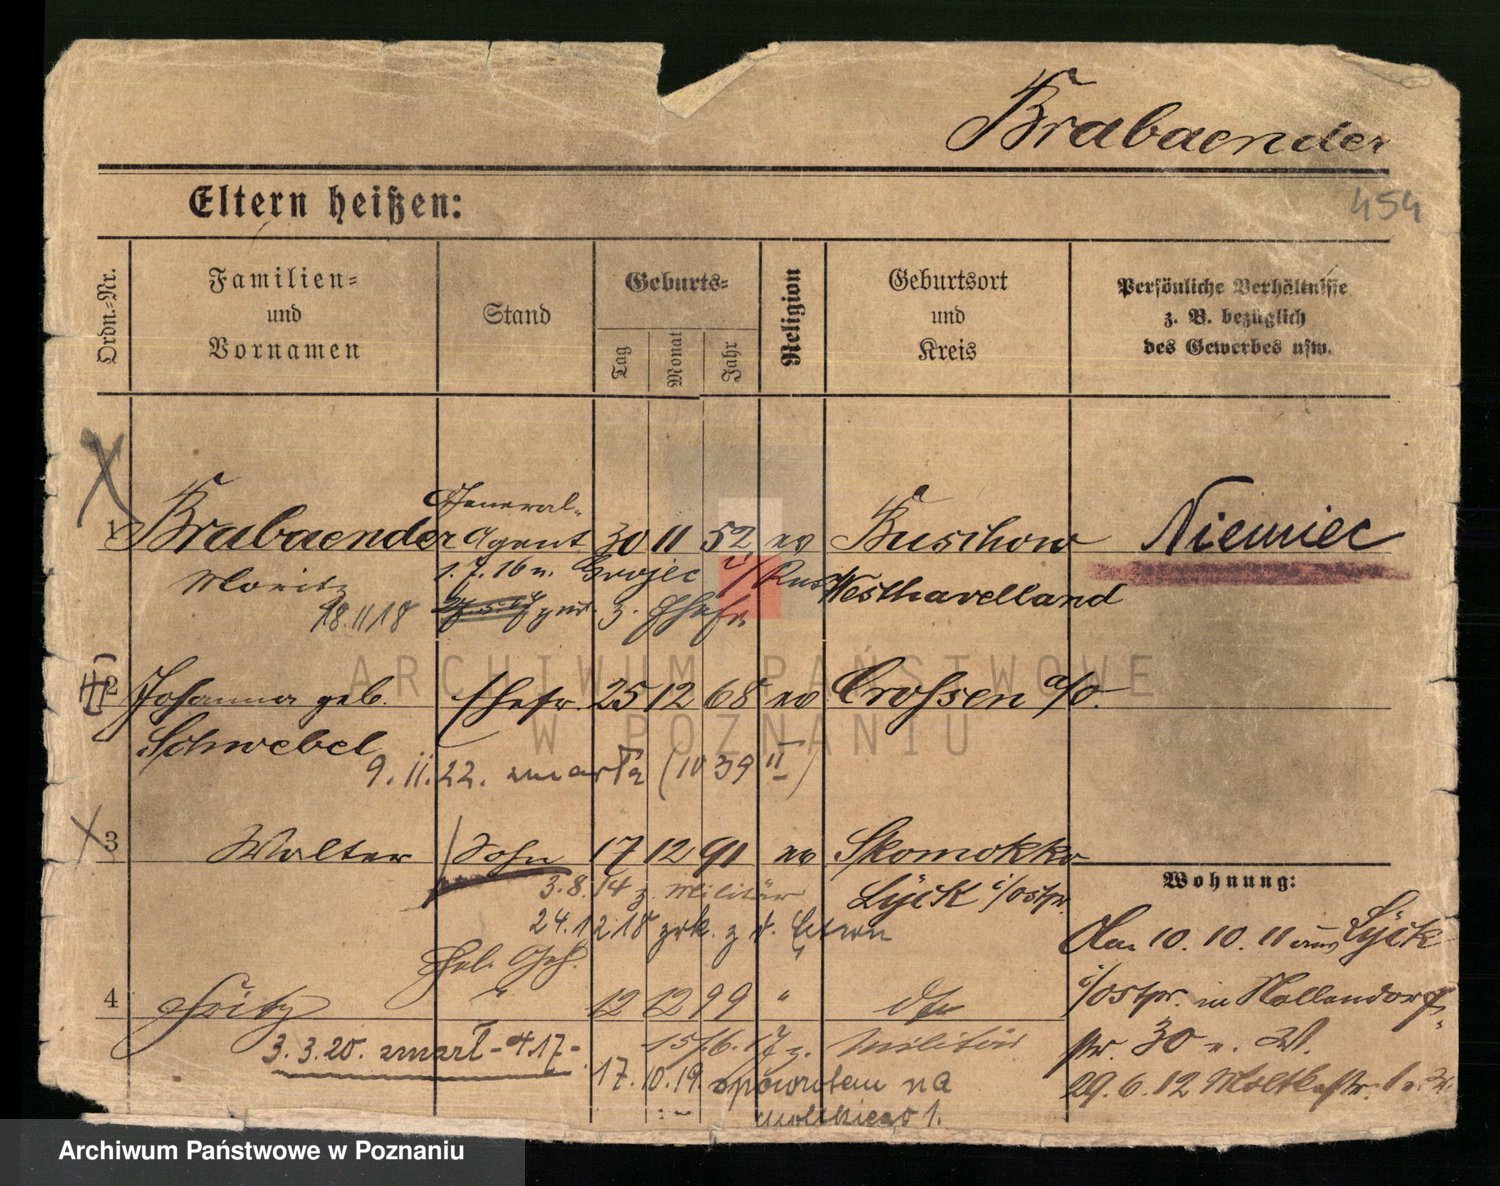 Brabaender
454
Eltern heißen:
Ordn.-Nr.
Familien- und Vornamen
Stand
Geburts-
Tag
Monat
Jahr
Religion
Geburtsort und Kreis
Persönliche Verhältnisse z. B. bezüglich des Gewerbes usw.
1 Brabaender General-Agent 30 11 52 ev Buschow Niemiec
Moritz 1.7.16 n. Grojec i/Rus Westhavelland
18.11.18 zur. z. Ehefr.
2 Johanna geb. Ehefr. 25 12 68 ev Crossen a/O.
Schwebel
9.11.22. zmarła (1039 II)
3 Walter Sohn 17 12 91 ev Skomokko
3.8.14 z Militär Lyck i/Ostpr.
24.12.18 zrk. z d. Eltern
4 Fritz " 12 12 99 "
15/6.17 z. Militär
3.3.20. zmarł - 417 -
17.10.19 spowrotem na
Moltkiego 1.
Wohnung:
Am 10.10.11 aus Lyck
i/Ostpr. in Nollendorf-
str. 30 n. W.
29.6.12 Moltkestr. 1
ARCHIWUM PAŃSTWOWE
W POZNANIU
Archiwum Państwowe w Poznaniu